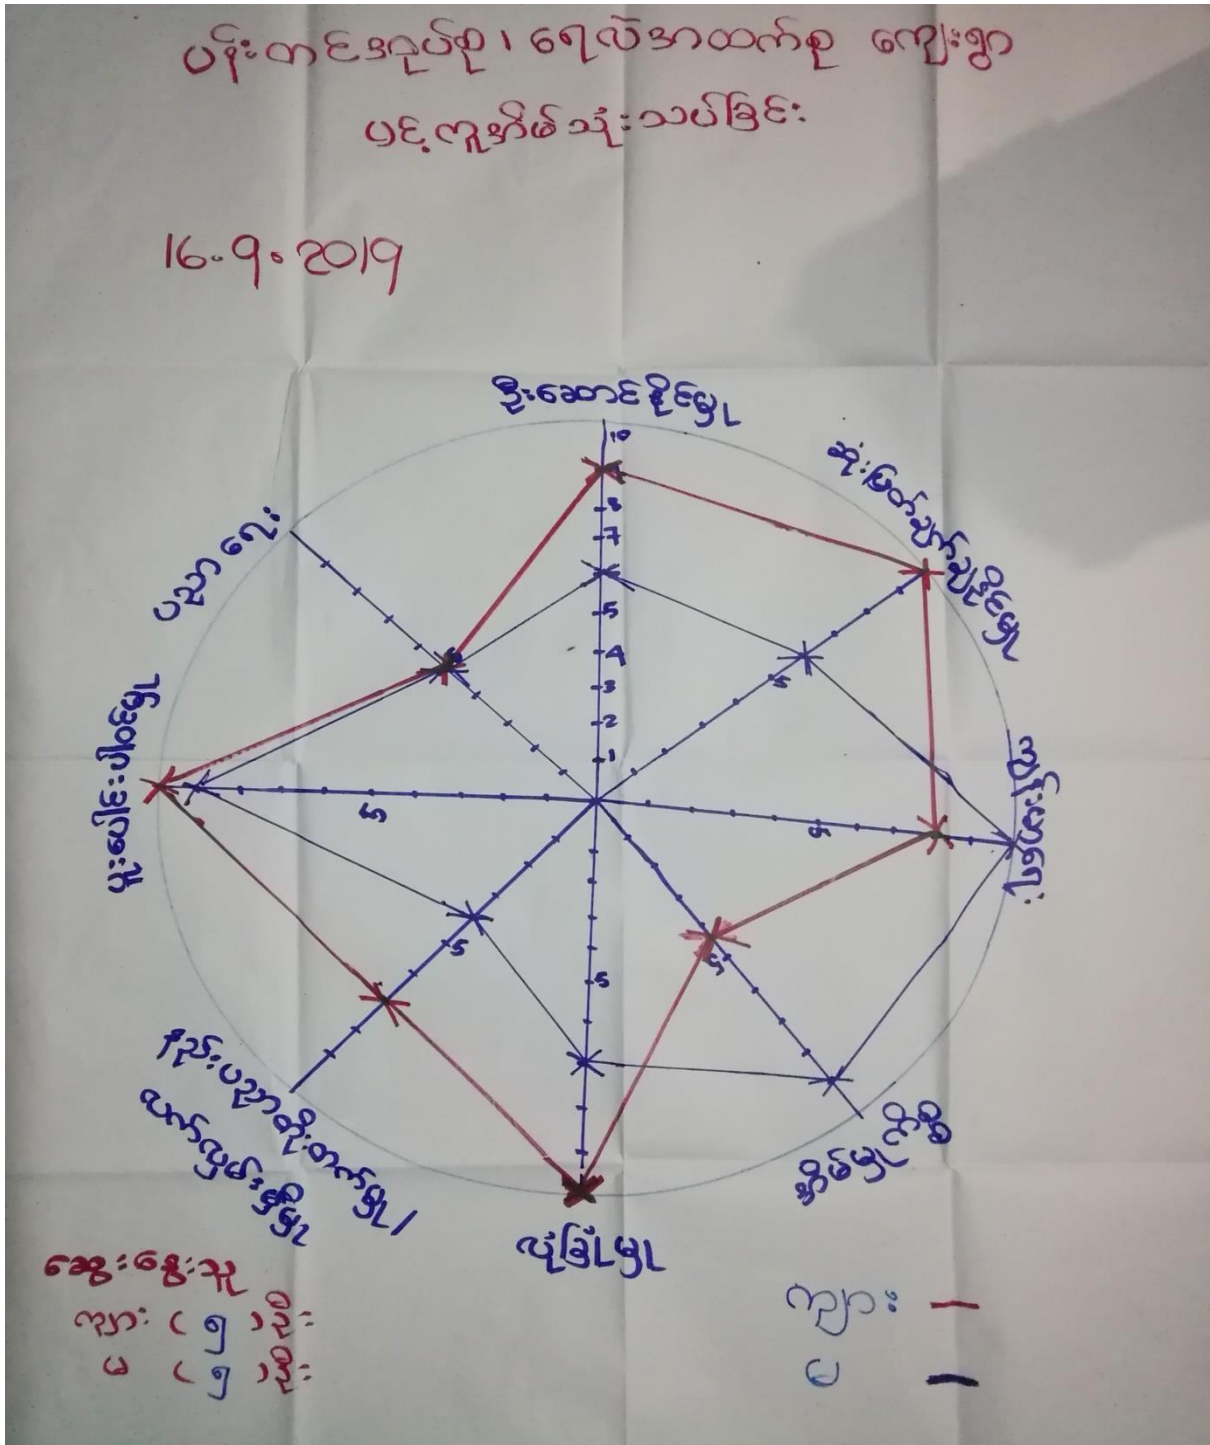 ပန်းတင်အုပ်စု၊ ရေလဲအထက်စု ကျေးရွာ
ပင့်ကူအိမ်သုံးသပ်ခြင်း
16.9.2019
ဦးဆောင်နိုင်မှု
ဆုံးဖြတ်ချက်ချနိုင်မှု
ကျန်းမာရေး
အိမ်မှုကိစ္စ
လုံခြုံမှု
နည်းပညာတိုးတက်မှု/
လက်လှမ်းမှီမှု
ပူးပေါင်းပါဝင်မှု
ပညာရေး
10
8
7
5
4
3
2
1
5
5
5
5
5
5
ဆွေးနွေးသူ
ကျား (၅) ဦး
မ (၅) ဦး
ကျား
မ